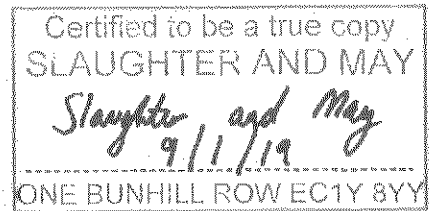 Certified to be a true copy
SLAUGHTER AND MAY
Slaughter and May
9/1/19
ONE BUNHILL ROW EC1Y 8YY